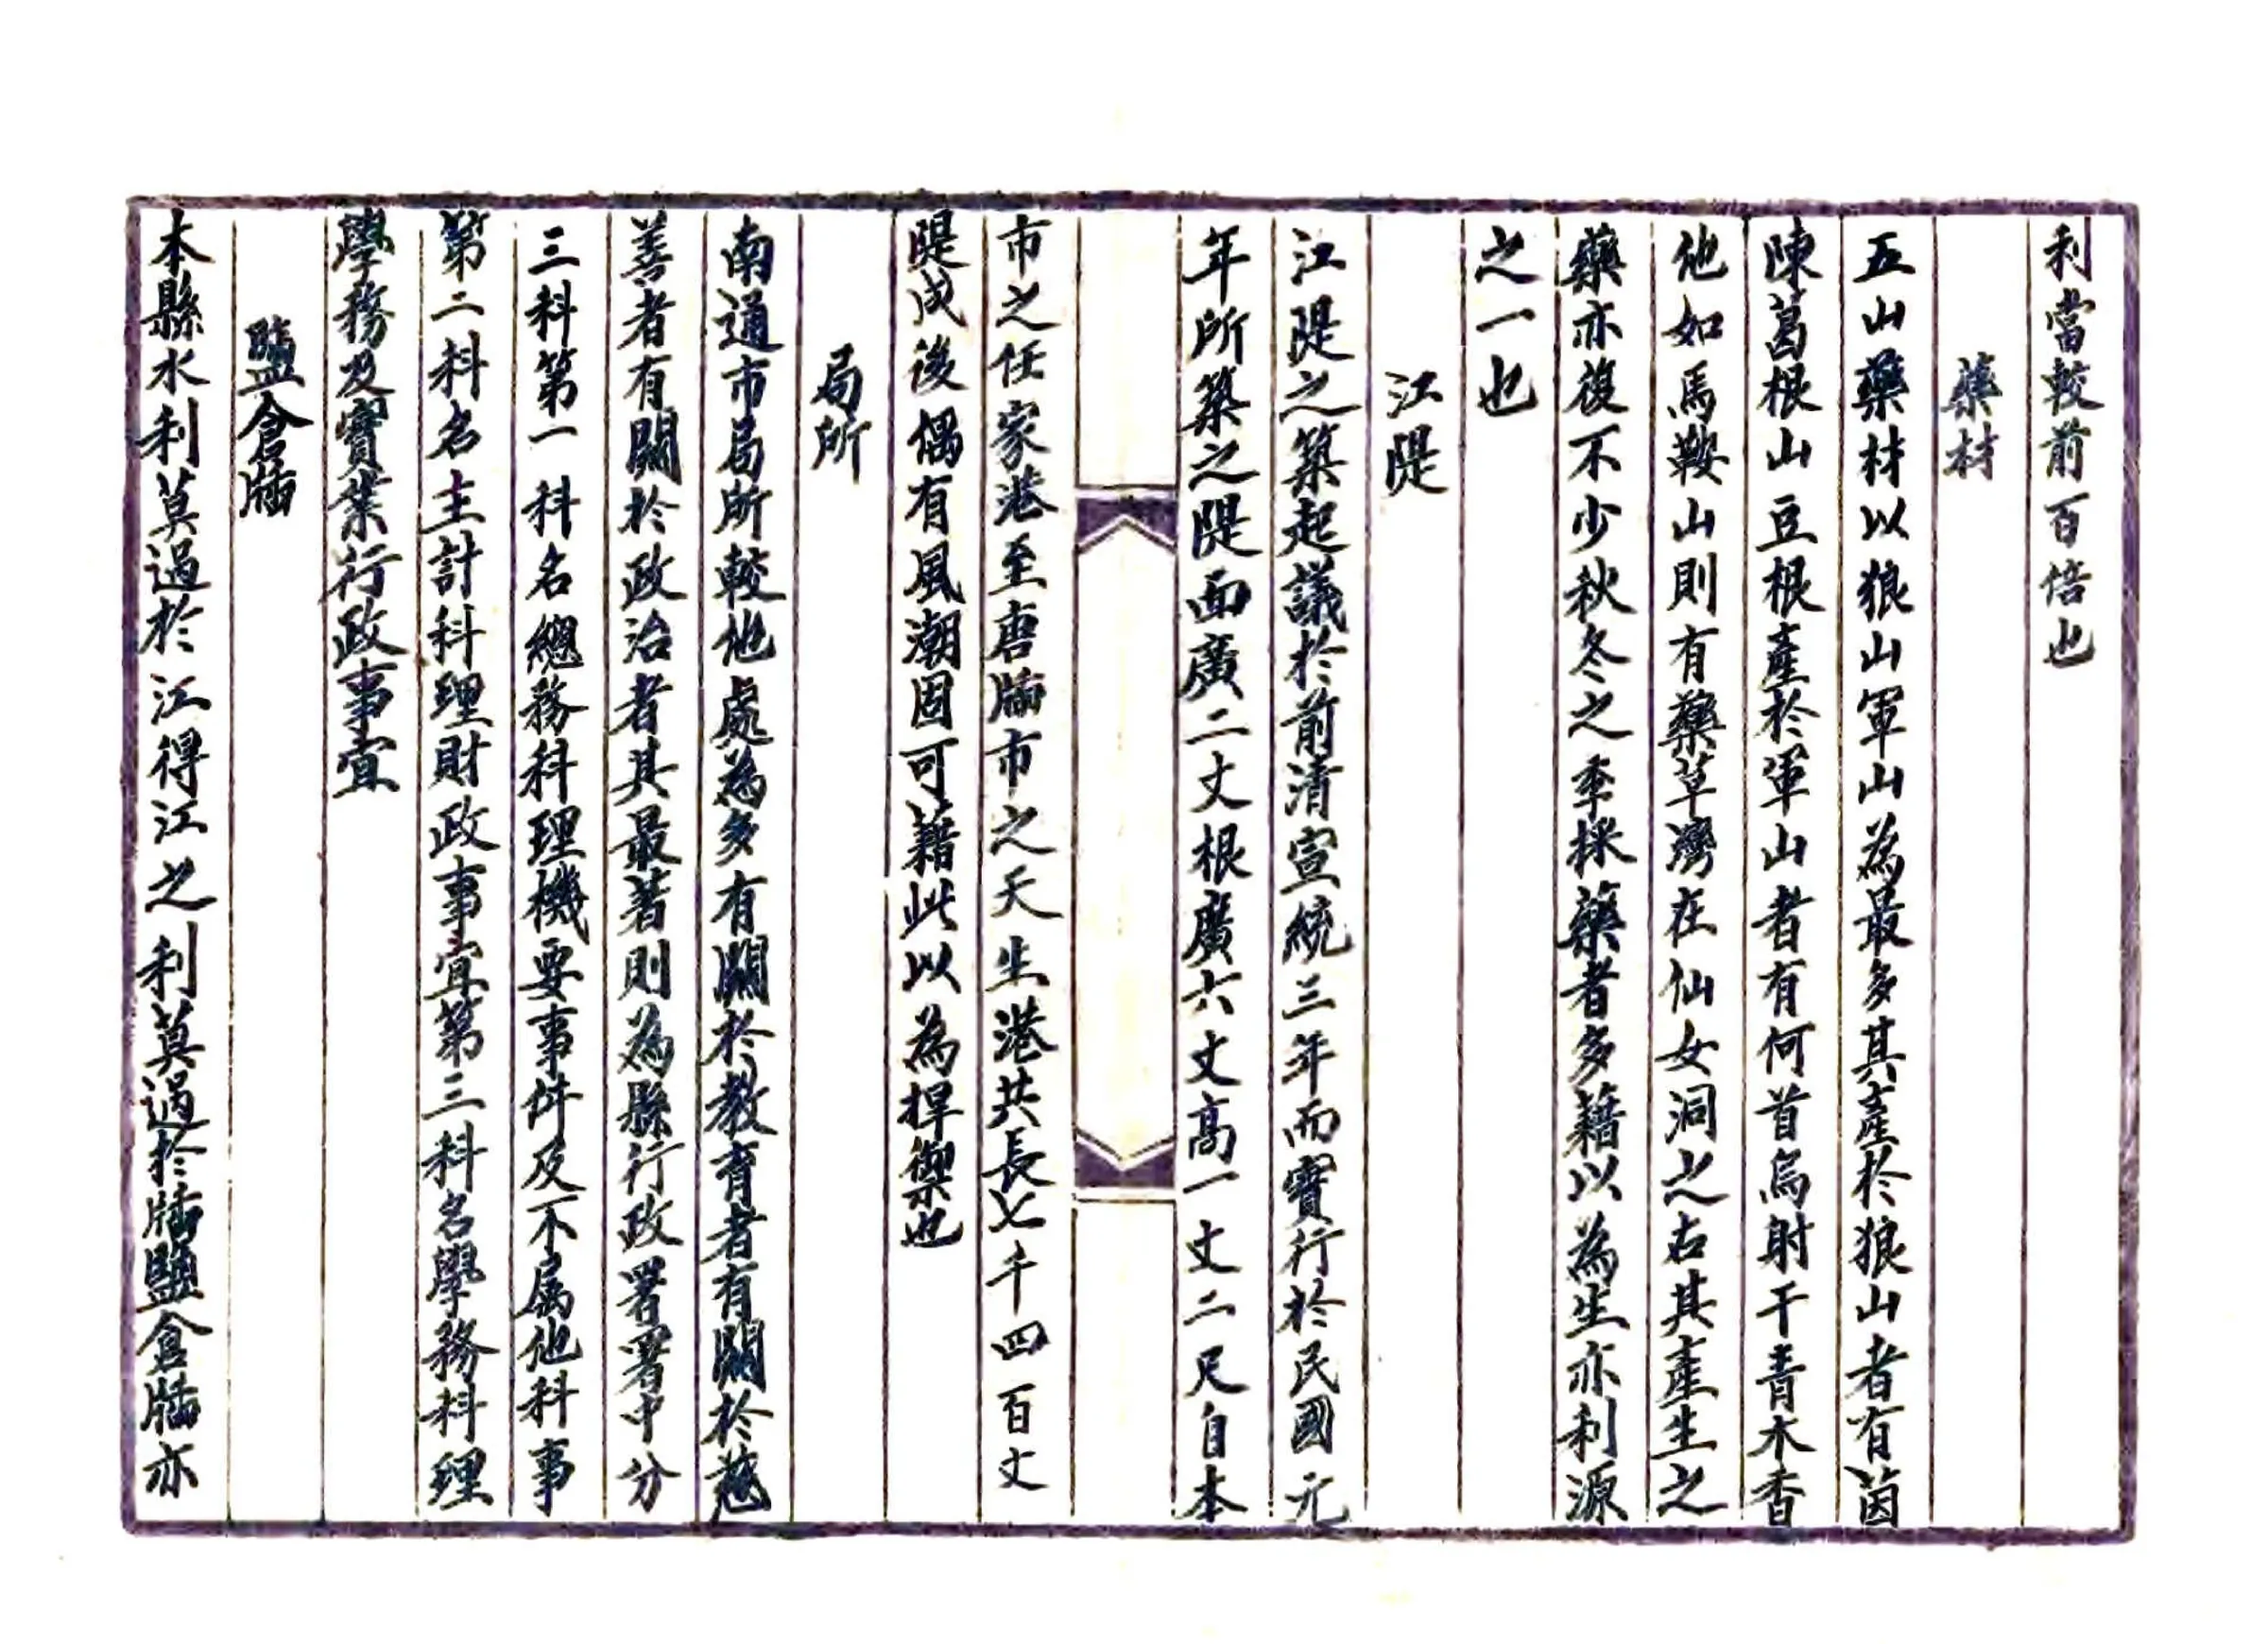 利當較前百倍也
藥材
五山藥材以狼山軍山為最多其產於狼山者有茵
陳葛根山豆根產於軍山者有何首烏射干青木香
他如馬鞍山則有藥草灣在仙女洞之右其產生之
藥亦復不少秋冬之季採藥者多藉以為生亦利源
之一也
江隄
江隄之築起議於前清宣統三年而實行於民國元
年所築之隄面廣二丈根廣六丈高一丈二尺自本
市之任家港至唐牐市之天生港共長七千四百丈
隄成後偶有風潮固可藉此以為捍禦也
局所
南通市局所較他處為多有關於教育者有關於慈
善者有關於政治者其最著則為縣行政署署中分
三科第一科名總務科理機要事件及不屬他科事
第二科名主計科理財政事宜第三科名學務科理
學務及實業行政事宜
鹽倉牐
本縣水利莫過於江得江之利莫過於牐鹽倉牐亦